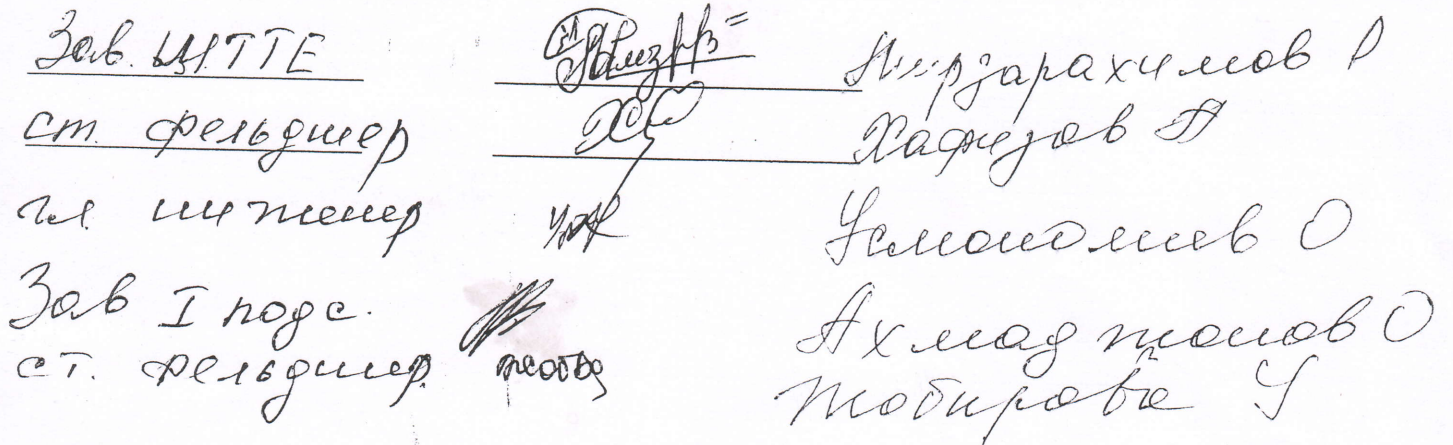 Зав. ЦГТТЕ Мирзарахимов Р
ст. фельдшер Хафизов А
гл. инженер Усмоналиев О
Зав I подс. Ахмаджонов О
ст. фельдшер. Жобирова У